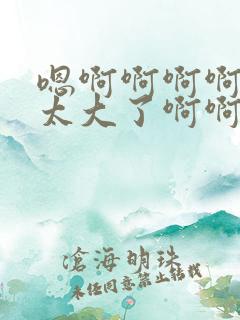 嗯啊啊啊啊
太大了啊啊
沧海明珠
未经同意禁止转载